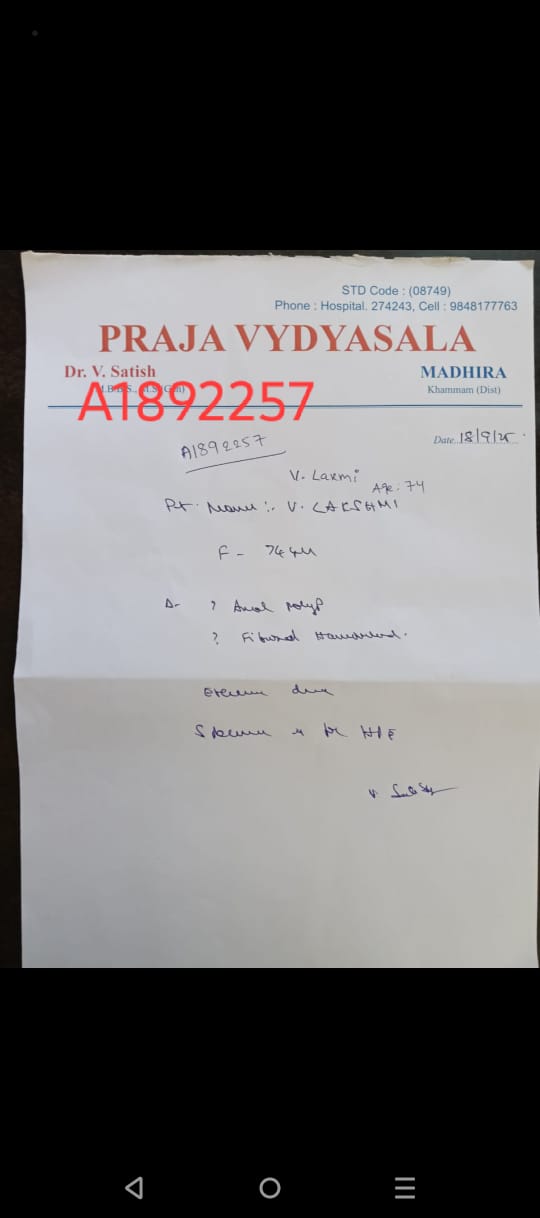 STD Code : (08749)
Phone : Hospital. 274243, Cell : 9848177763
PRAJA VYDYASALA
Dr. V. Satish
MADHIRA
Khammam (Dist)
A1892257
A1892257
Date. 18/9/25
V. Laxmi
Age: 74
Pt. Name :- V. LAKSHMI
F - 74
? Anal polyp
?
Excision done
HPE
V. Satish